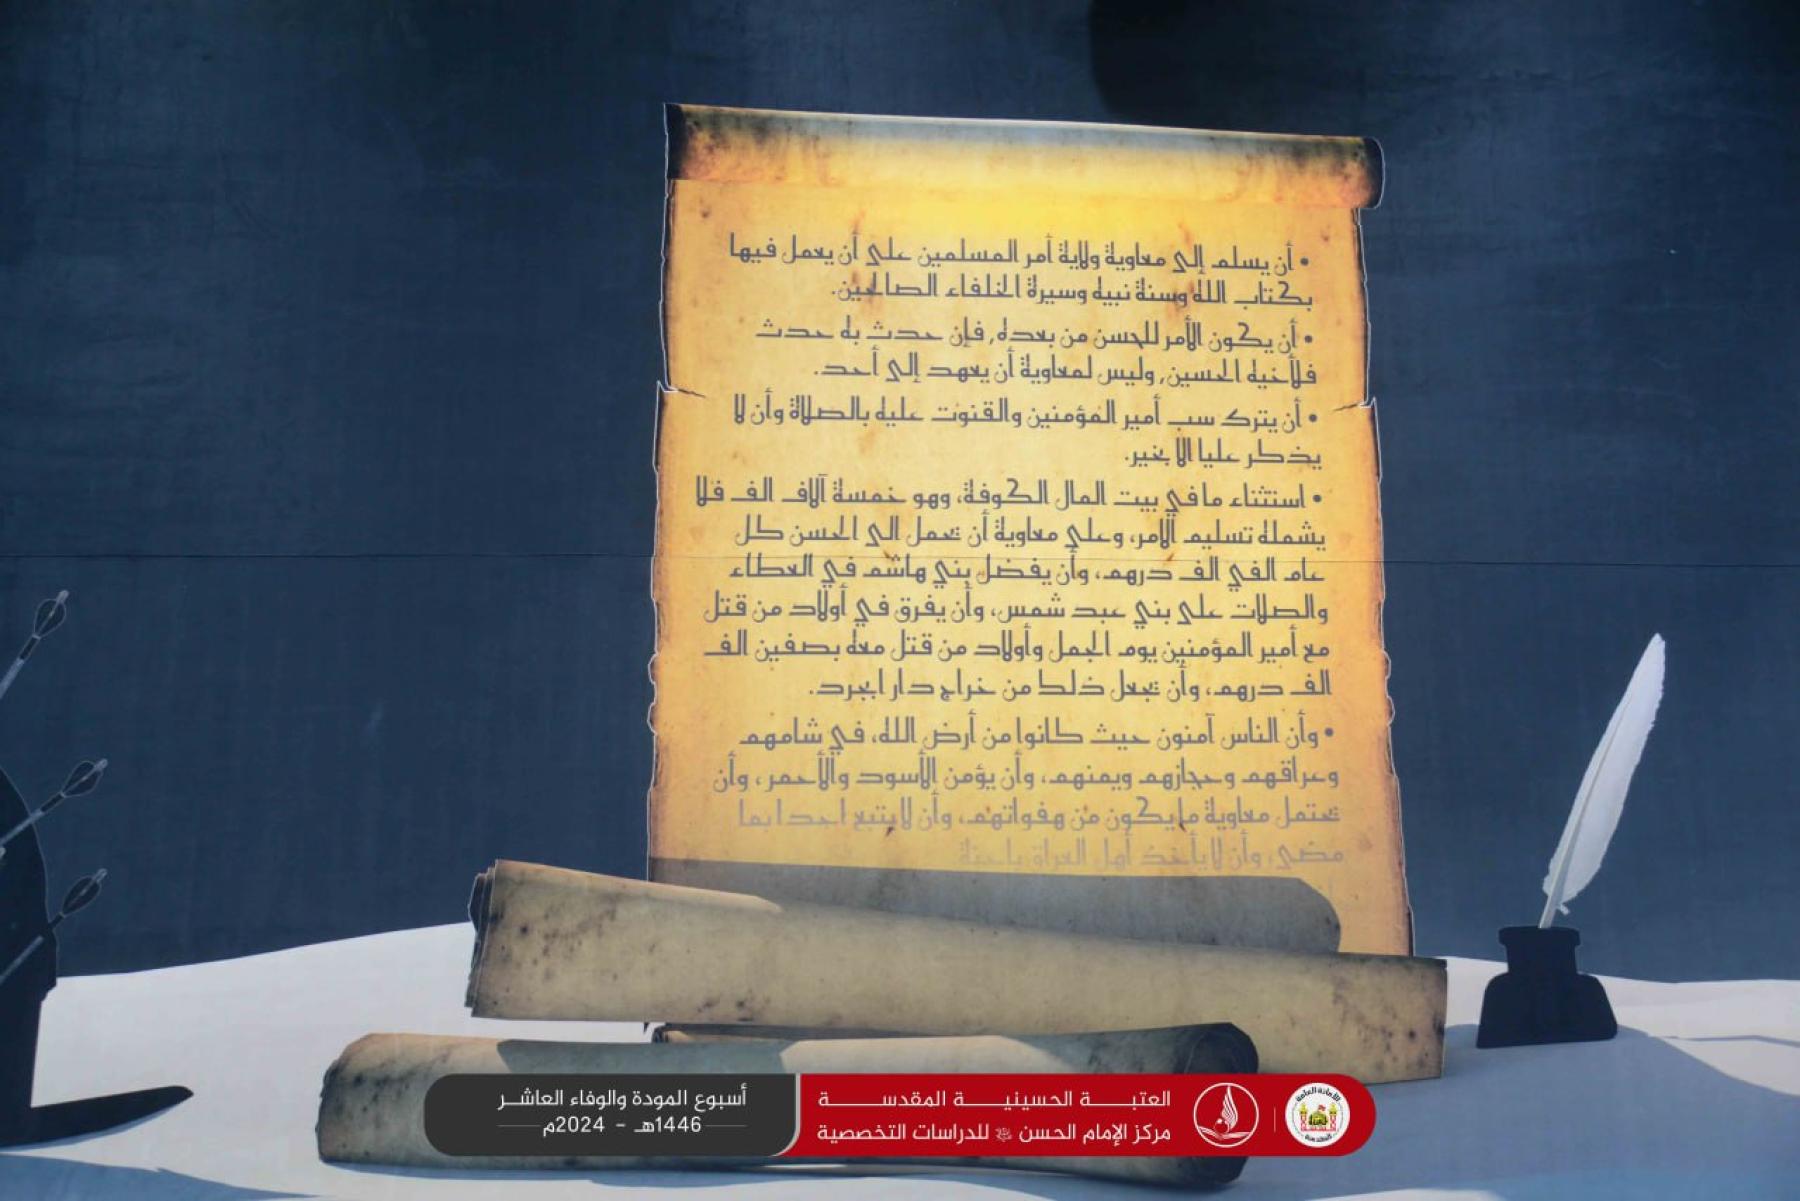 • أن يسلم إلى معاوية ولاية أمر المسلمين على أن يعمل فيها
بكتاب الله وسنة نبيه وسيرة الخلفاء الصالحين.
• أن يكون الأمر للحسن من بعده, فإن حدث به حدث
فلأخيه الحسين, وليس لمعاوية أن يعهد إلى أحد.
• أن يترك سب أمير المؤمنين والقنوت عليه بالصلاة وأن لا
يذكر عليا الا بخير.
• استثناء ما في بيت المال الكوفة، وهو خمسة آلاف الف فلا
يشمله تسليم الامر، وعلى معاوية أن يحمل الى الحسن كل
عام الفي الف درهم، وأن يفضل بني هاشم في العطاء
والصلات على بني عبد شمس، وأن يفرق في أولاد من قتل
مع أمير المؤمنين يوم الجمل وأولاد من قتل معه بصفين الف
الف درهم، وأن يجعل ذلك من خراج دار ابجرد.
• وأن الناس آمنون حيث كانوا من أرض الله، في شامهم
وعراقهم وحجازهم ويمنهم، وأن يؤمن الأسود والأحمر، وأن
يحتمل معاوية ما يكون من هفواتهم، وأن لا يتبع احدا بما
مضى، وأن لا يأخذ أهل العراق باحنة
العتبة الحسينية المقدسة
مركز الإمام الحسن للدراسات التخصصية
أسبوع المودة والوفاء العاشر
1446هـ - 2024م